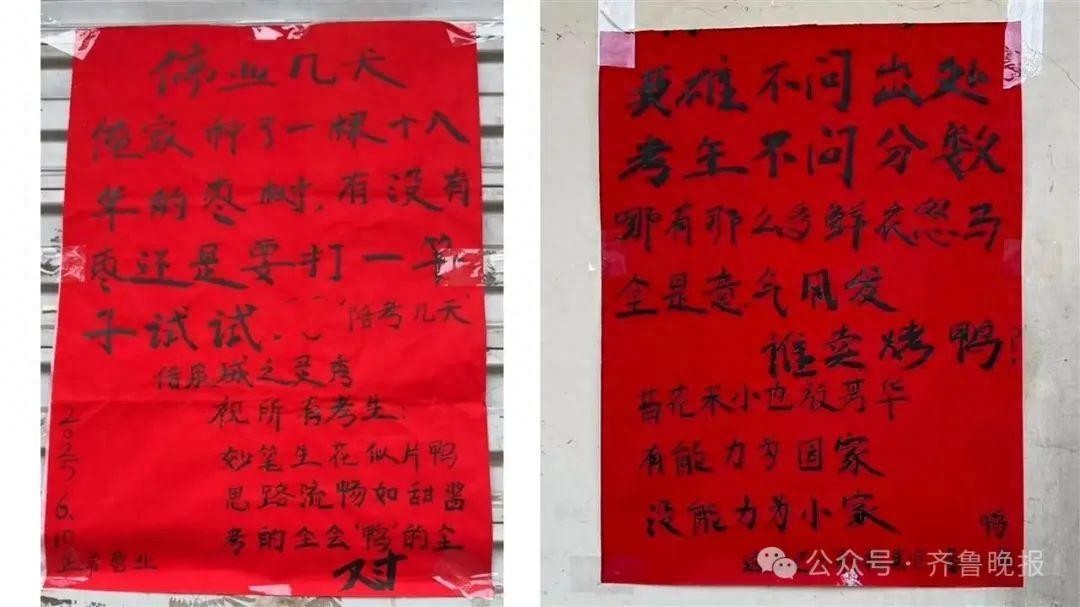 停业几天
俺家种了一棵十八
年的枣树,有没有
枣还是要打一竿
子试试. '陪考几天'
借泉城之灵秀
祝所有考生:
妙笔生花似片鸭
思路流畅如甜酱
考的全会'鸭'的全
对
2025.6.10正常营业
英雄不问出处
考生不问分数
哪有那么多鲜衣怒马
全是意气风发
谁卖烤鸭!
苔花米小也放芳华
有能力为国家
没能力为小家
鸭
公众号·齐鲁晚报